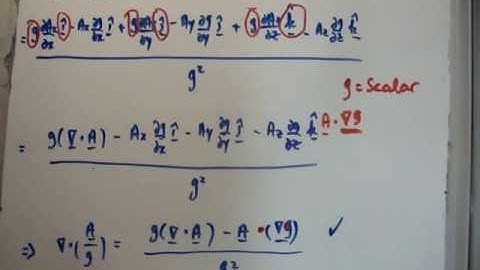 = g ∂Ax/∂x î - Ax ∂g/∂x î + g ∂Ay/∂y ĵ - Ay ∂g/∂y ĵ + g ∂Az/∂z k̂ - Az ∂g/∂z k̂
g²
g = Scalar
= g(∇·A) - Ax ∂g/∂x î - Ay ∂g/∂y ĵ - Az ∂g/∂z k̂ A·∇g
g²
⇒ ∇·(A/g) = g(∇·A) - A·(∇g) ✓
g²